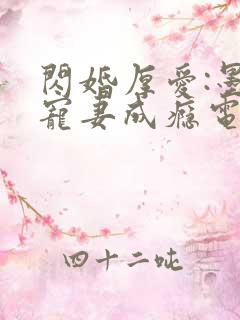 閃婚厚愛:墨
寵妻成癮電
四十二吨